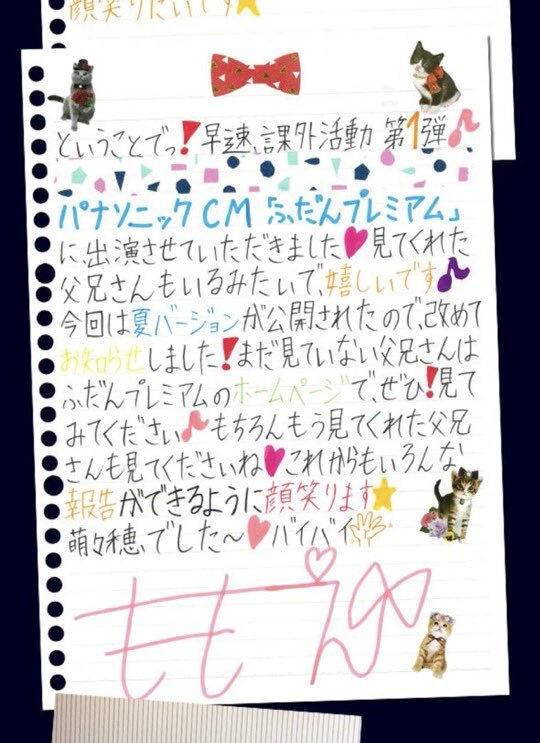 顔笑りたいです⭐
ということでっ❗早速、課外活動 第1弾♪
パナソニックCM「ふだんプレミアム」
に、出演させていただきました♥見てくれた
父兄さんもいるみたいで、嬉しいです♪
今回は夏バージョンが公開されたので、改めて
お知らせしました❗まだ見ていない父兄さんは
ふだんプレミアムのホームページで、ぜひ❗見て
みてください♪もちろんもう見てくれた父兄
さんも見てくださいね♥これからもいろんな
報告ができるように顔笑ります⭐
萌々穂、でした〜♥バイバイ👋